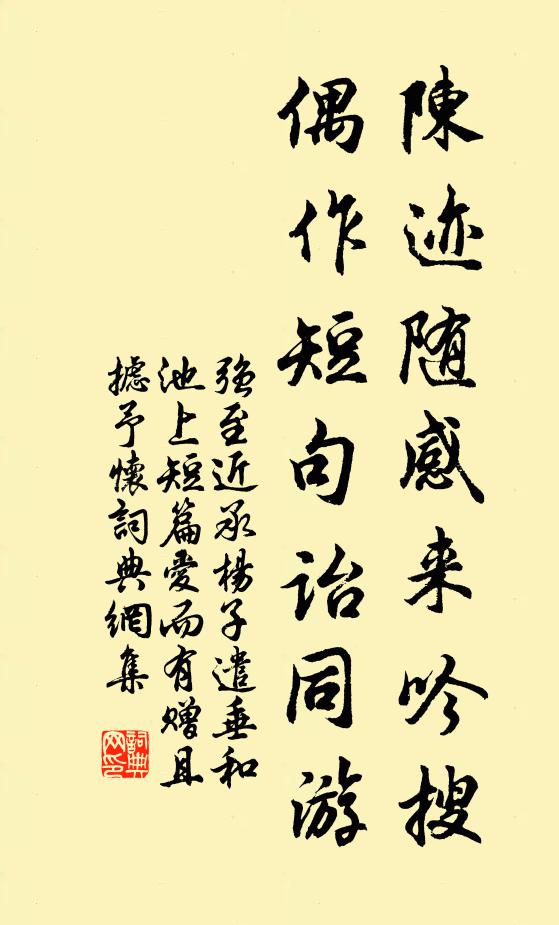 陳迹随感来吟搜
偶作短句詒同游
強至近承楊子遣垂和
池上短篇愛而有贈且
攄予懷詞典網集
詞典
网印